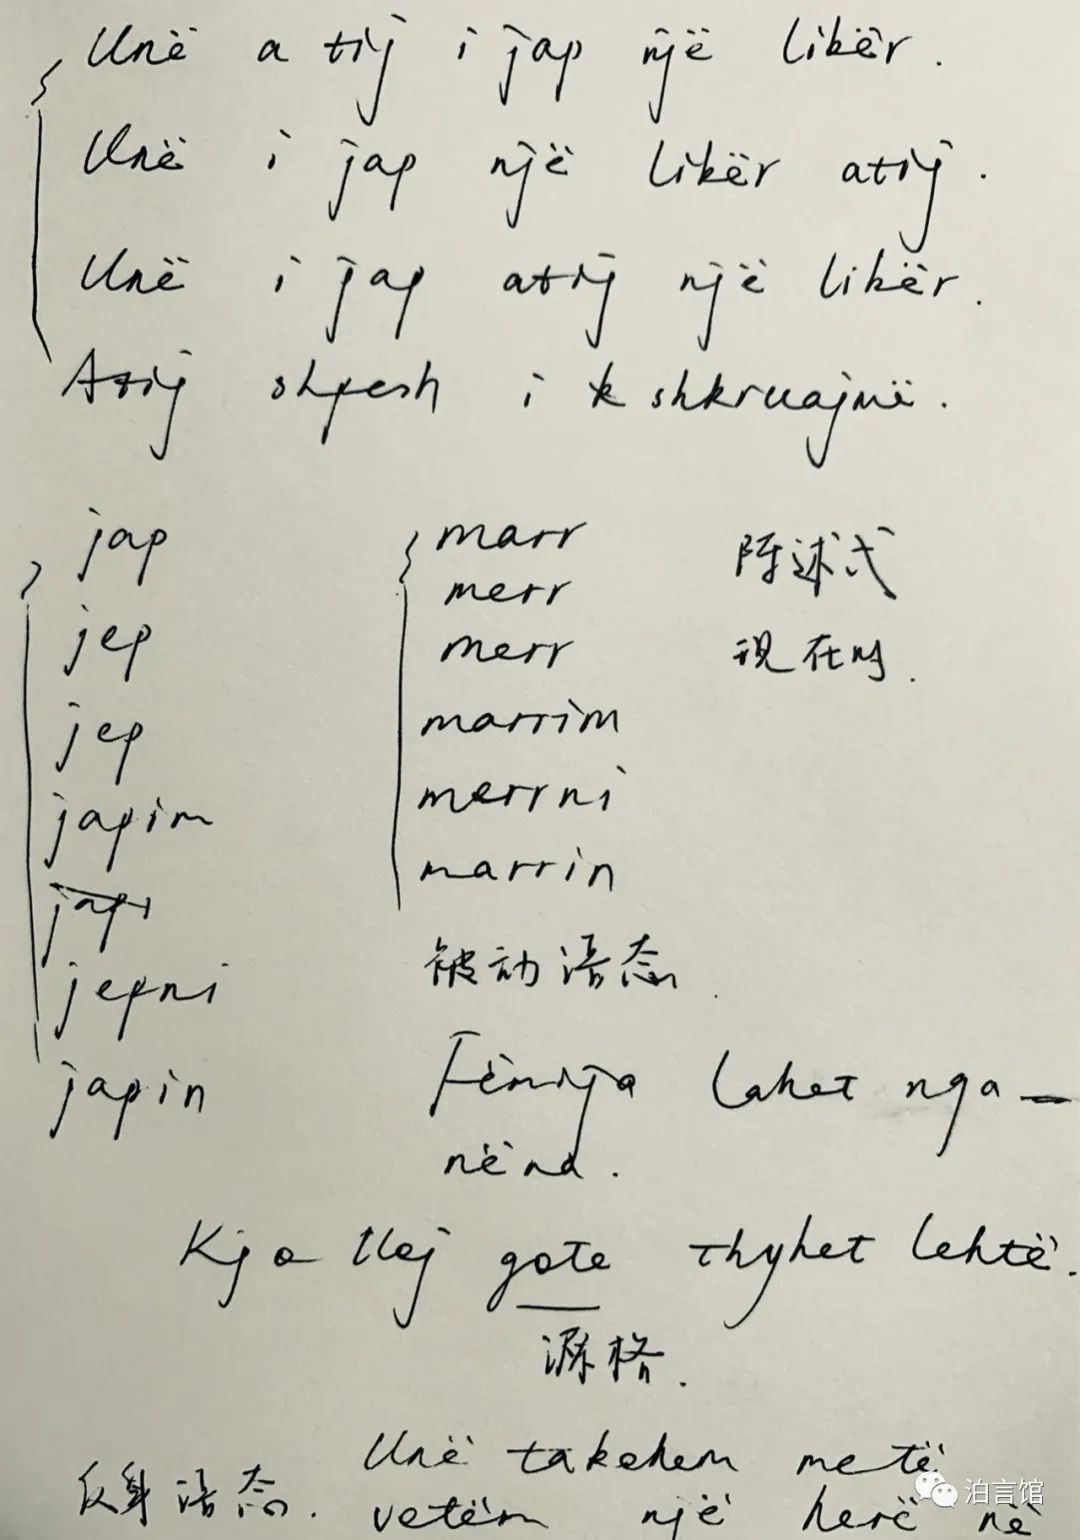 Unë a tij i jap një libër.
Unë i jap një libër atij.
Unë i jap atij një libër.
Atij shpesh i shkruajmë.
jap
jep
jep
japim
japi
jepni
japin
marr
merr
merr
marrim
merrni
marrin
陈述式
现在时.
被动语态.
Fëmija lahet nga
nëna.
Kjo lloj gote thyhet lehtë.
源格.
反身语态.
Unë takehem me të
vetëm një herë në
泊言馆